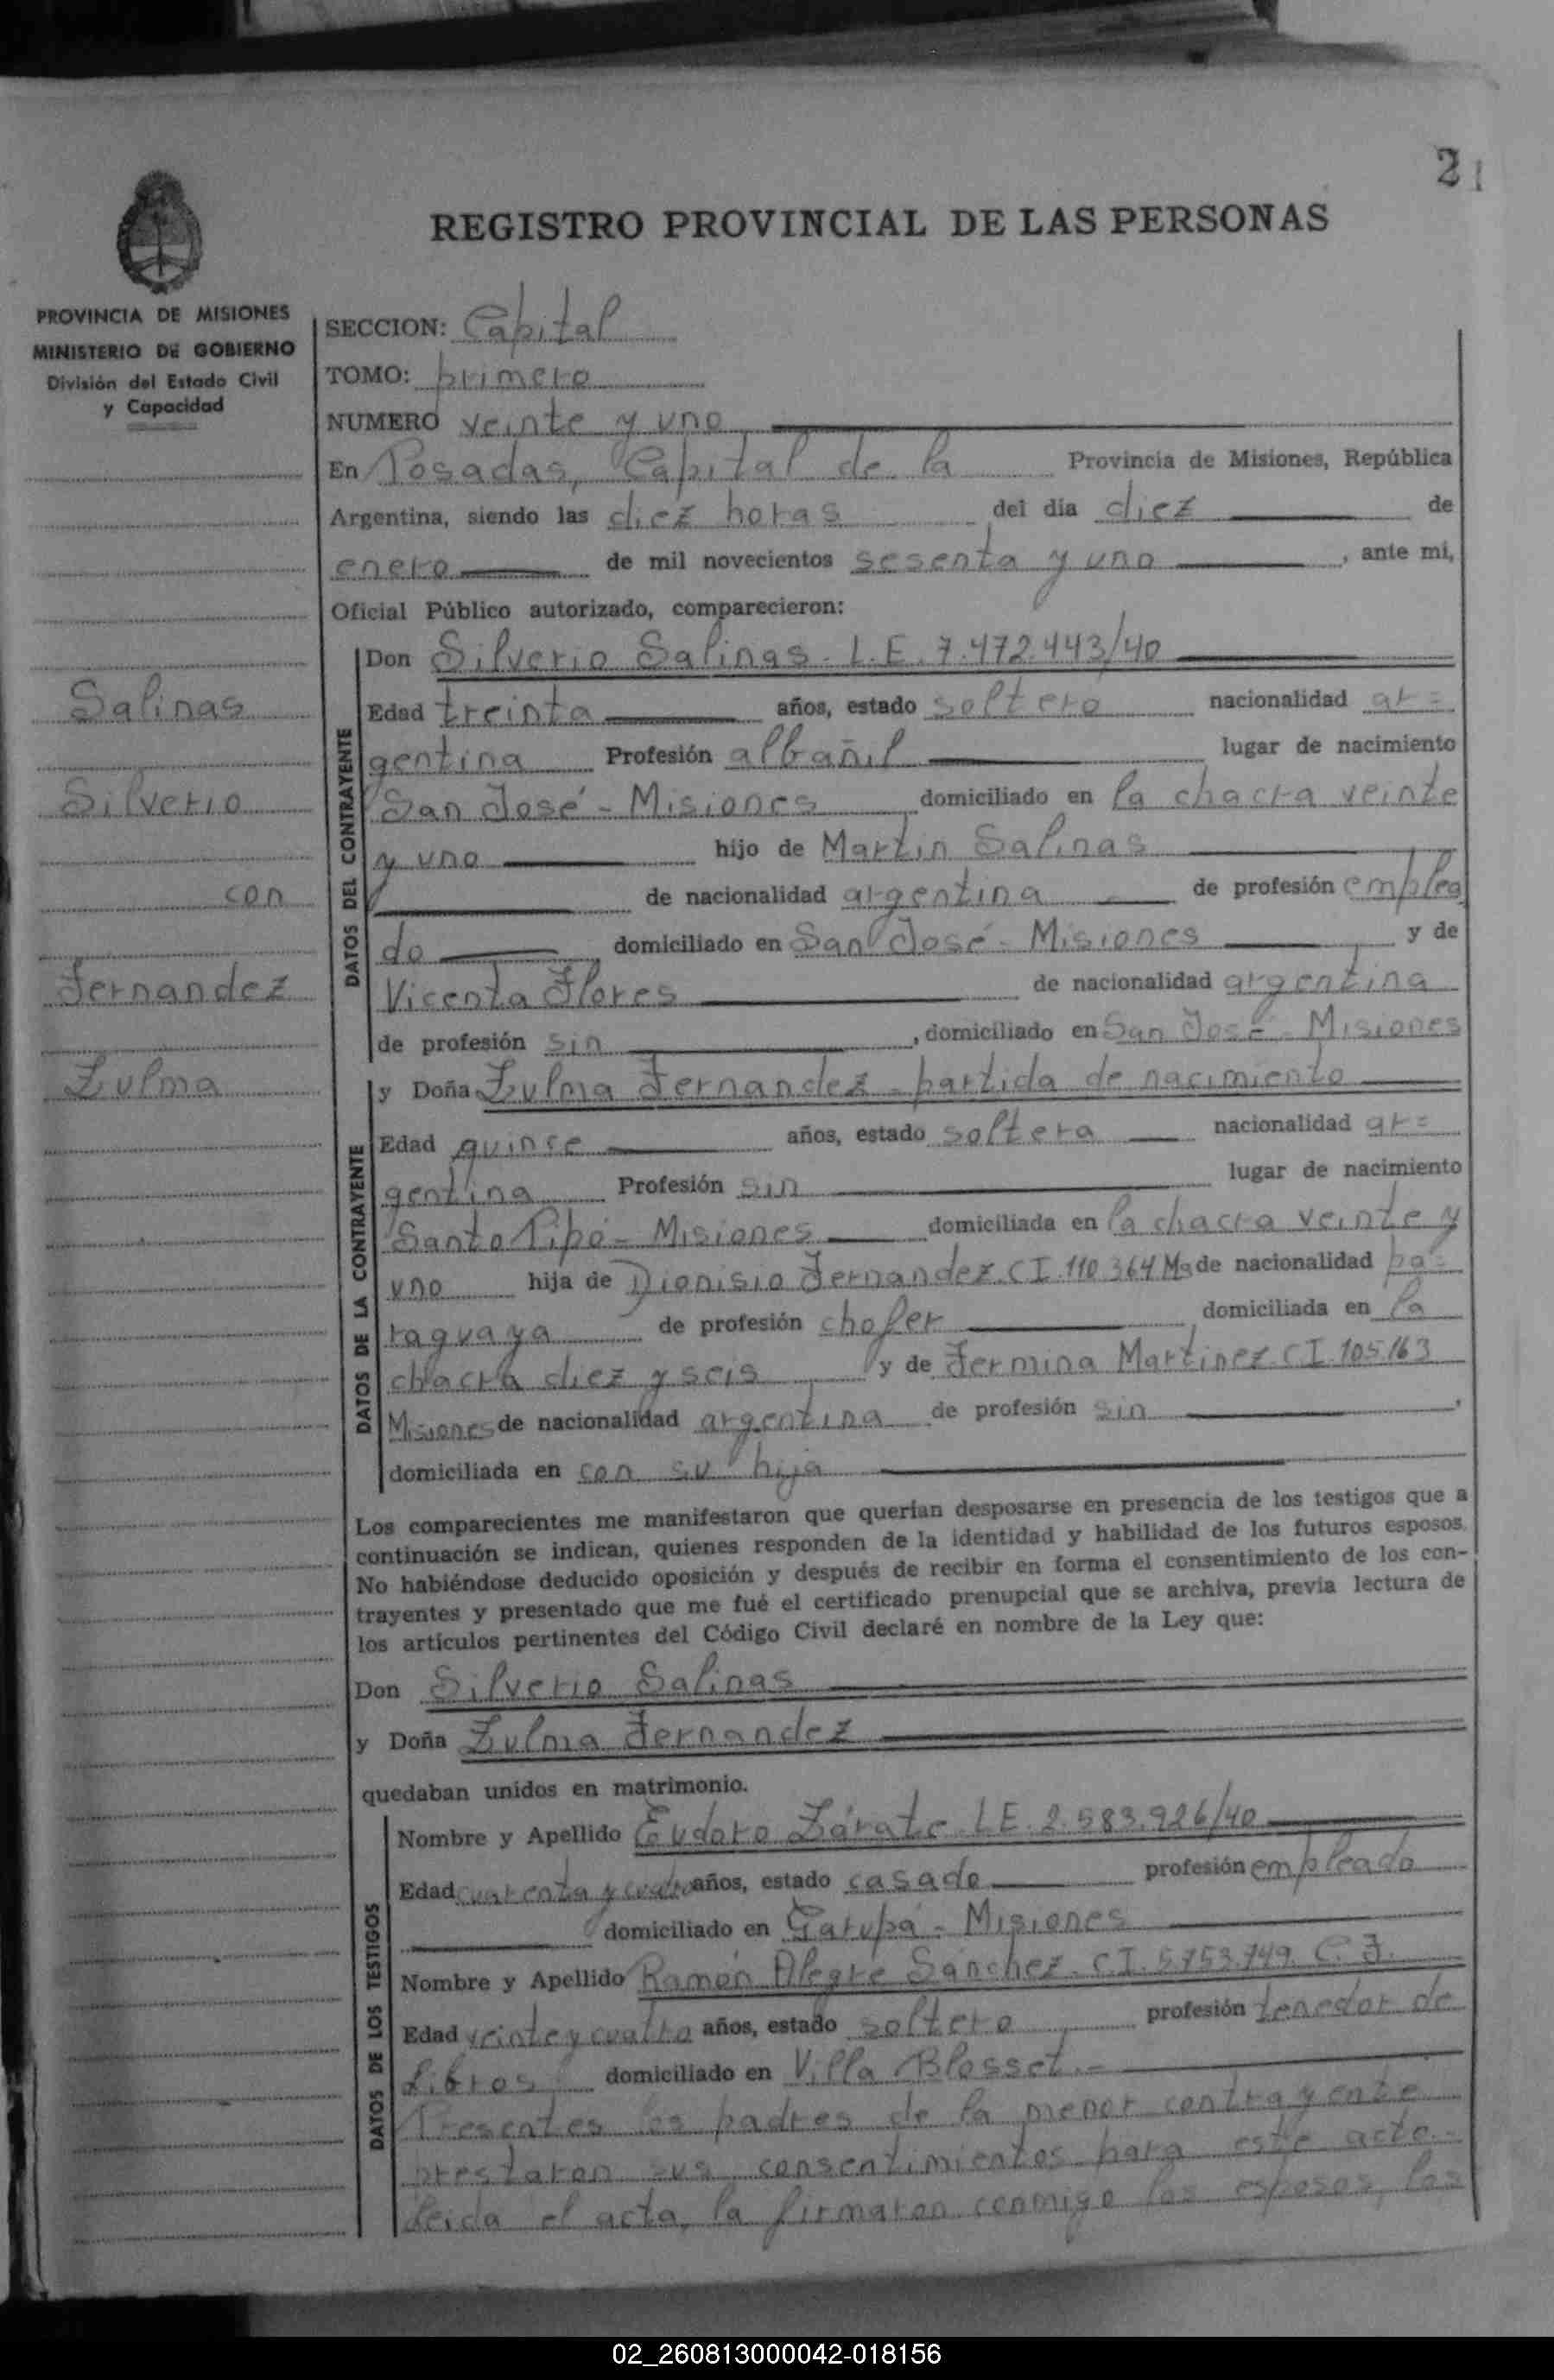 21
REGISTRO PROVINCIAL DE LAS PERSONAS
PROVINCIA DE MISIONES
MINISTERIO DE GOBIERNO
División del Estado Civil
y Capacidad
Salinas
Silverio
con
Fernandez
Zulma
SECCION: Capital
TOMO: primero
NUMERO veinte y uno
En Posadas, Capital de la Provincia de Misiones, República
Argentina, siendo las diez horas del día diez de
enero de mil novecientos sesenta y uno, ante mi,
Oficial Público autorizado, comparecieron:
DATOS DEL CONTRAYENTE
Don Silverio Salinas. L.E. 7.472.443/40
Edad treinta años, estado soltero nacionalidad ar=
gentina Profesión albañil lugar de nacimiento
San José - Misiones domiciliado en la chacra veinte
y uno hijo de Martin Salinas
de nacionalidad argentina de profesión emplea
do domiciliado en San José - Misiones y de
Vicenta Flores de nacionalidad argentina
de profesión sin, domiciliado en San José - Misiones
DATOS DE LA CONTRAYENTE
y Doña Zulma Fernandez - partida de nacimiento
Edad quinse años, estado soltera nacionalidad ar=
gentina Profesión sin lugar de nacimiento
Santo Pipó - Misiones domiciliada en la chacra veinte y
uno hija de Dionisio Fernandez. C I. 110.364 Ms de nacionalidad pa=
raguaya de profesión chofer domiciliada en la
chacra diez y seis y de Fermina Martinez. C I. 105.163
Misiones de nacionalidad argentina de profesión sin,
domiciliada en con su hija
Los comparecientes me manifestaron que querían desposarse en presencia de los testigos que a
continuación se indican, quienes responden de la identidad y habilidad de los futuros esposos.
No habiéndose deducido oposición y después de recibir en forma el consentimiento de los con-
trayentes y presentado que me fué el certificado prenupcial que se archiva, previa lectura de
los artículos pertinentes del Código Civil declaré en nombre de la Ley que:
Don Silverio Salinas
y Doña Zulma Fernandez
quedaban unidos en matrimonio.
DATOS DE LOS TESTIGOS
Nombre y Apellido Eudoro Zárate L E. 2.583.926/40
Edad cuarenta y cuatro años, estado casado profesión empleado
domiciliado en Garupá - Misiones
Nombre y Apellido Ramón Alegre Sánchez. C I. 5.753.749. C. F.
Edad veinte y cuatro años, estado soltero profesión tenedor de
Libros domiciliado en Villa Blosset.-
Presentes los padres de la menor contrayente
prestaron sus consentimientos para este acto.-
Leida el acta, la firmaron conmigo los esposos, los
02_260813000042-018156